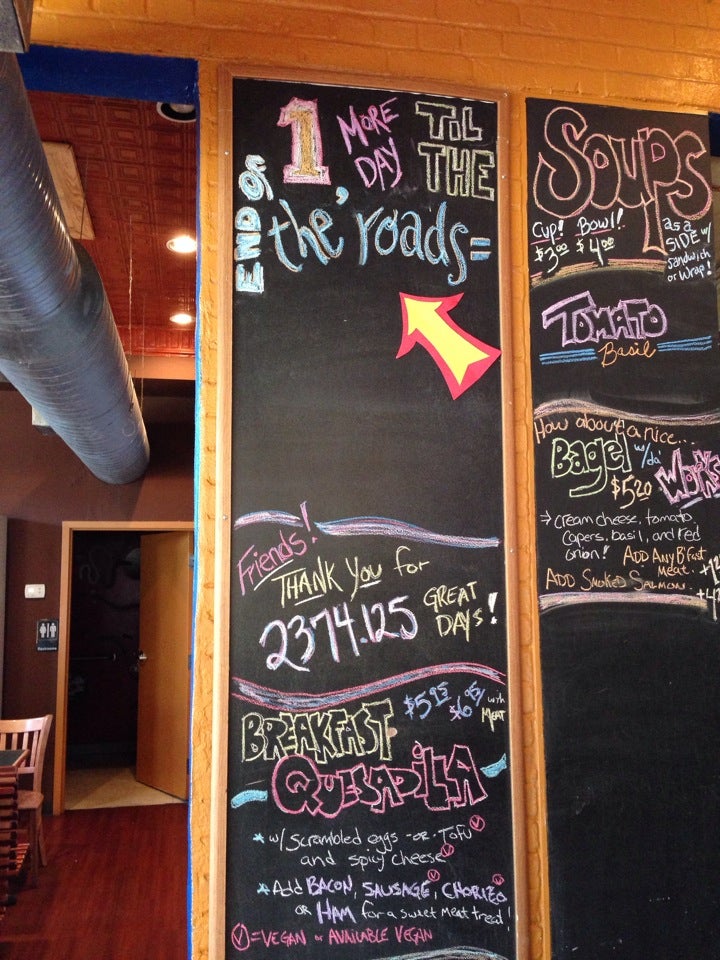 1 MORE DAY TIL THE
END OF the' roads =
Friends!
THANK You for
2374.125 GREAT DAYS!
BREAKFAST $5.95 $6.95 with MEAT
QUESADILLA
* w/ Scrambled eggs -or- Tofu Ⓥ
and spicy cheese Ⓥ
* Add BACON, SAUSAGE, CHORIZO
OR HAM for a sweet meat treat!
Ⓥ = VEGAN or AVAILABLE VEGAN
Soups
Cup! Bowl!
$3.00 $4.00
as a SIDE w/ sandwich or Wrap!
TOMATO
Basil
How about a nice...
Bagel w/da' WORKS
$5.20
→ Cream cheese, tomato,
Capers, basil, and red
onion! ADD ANY B'fast
Meat
ADD SMOKED SALMON
Restrooms